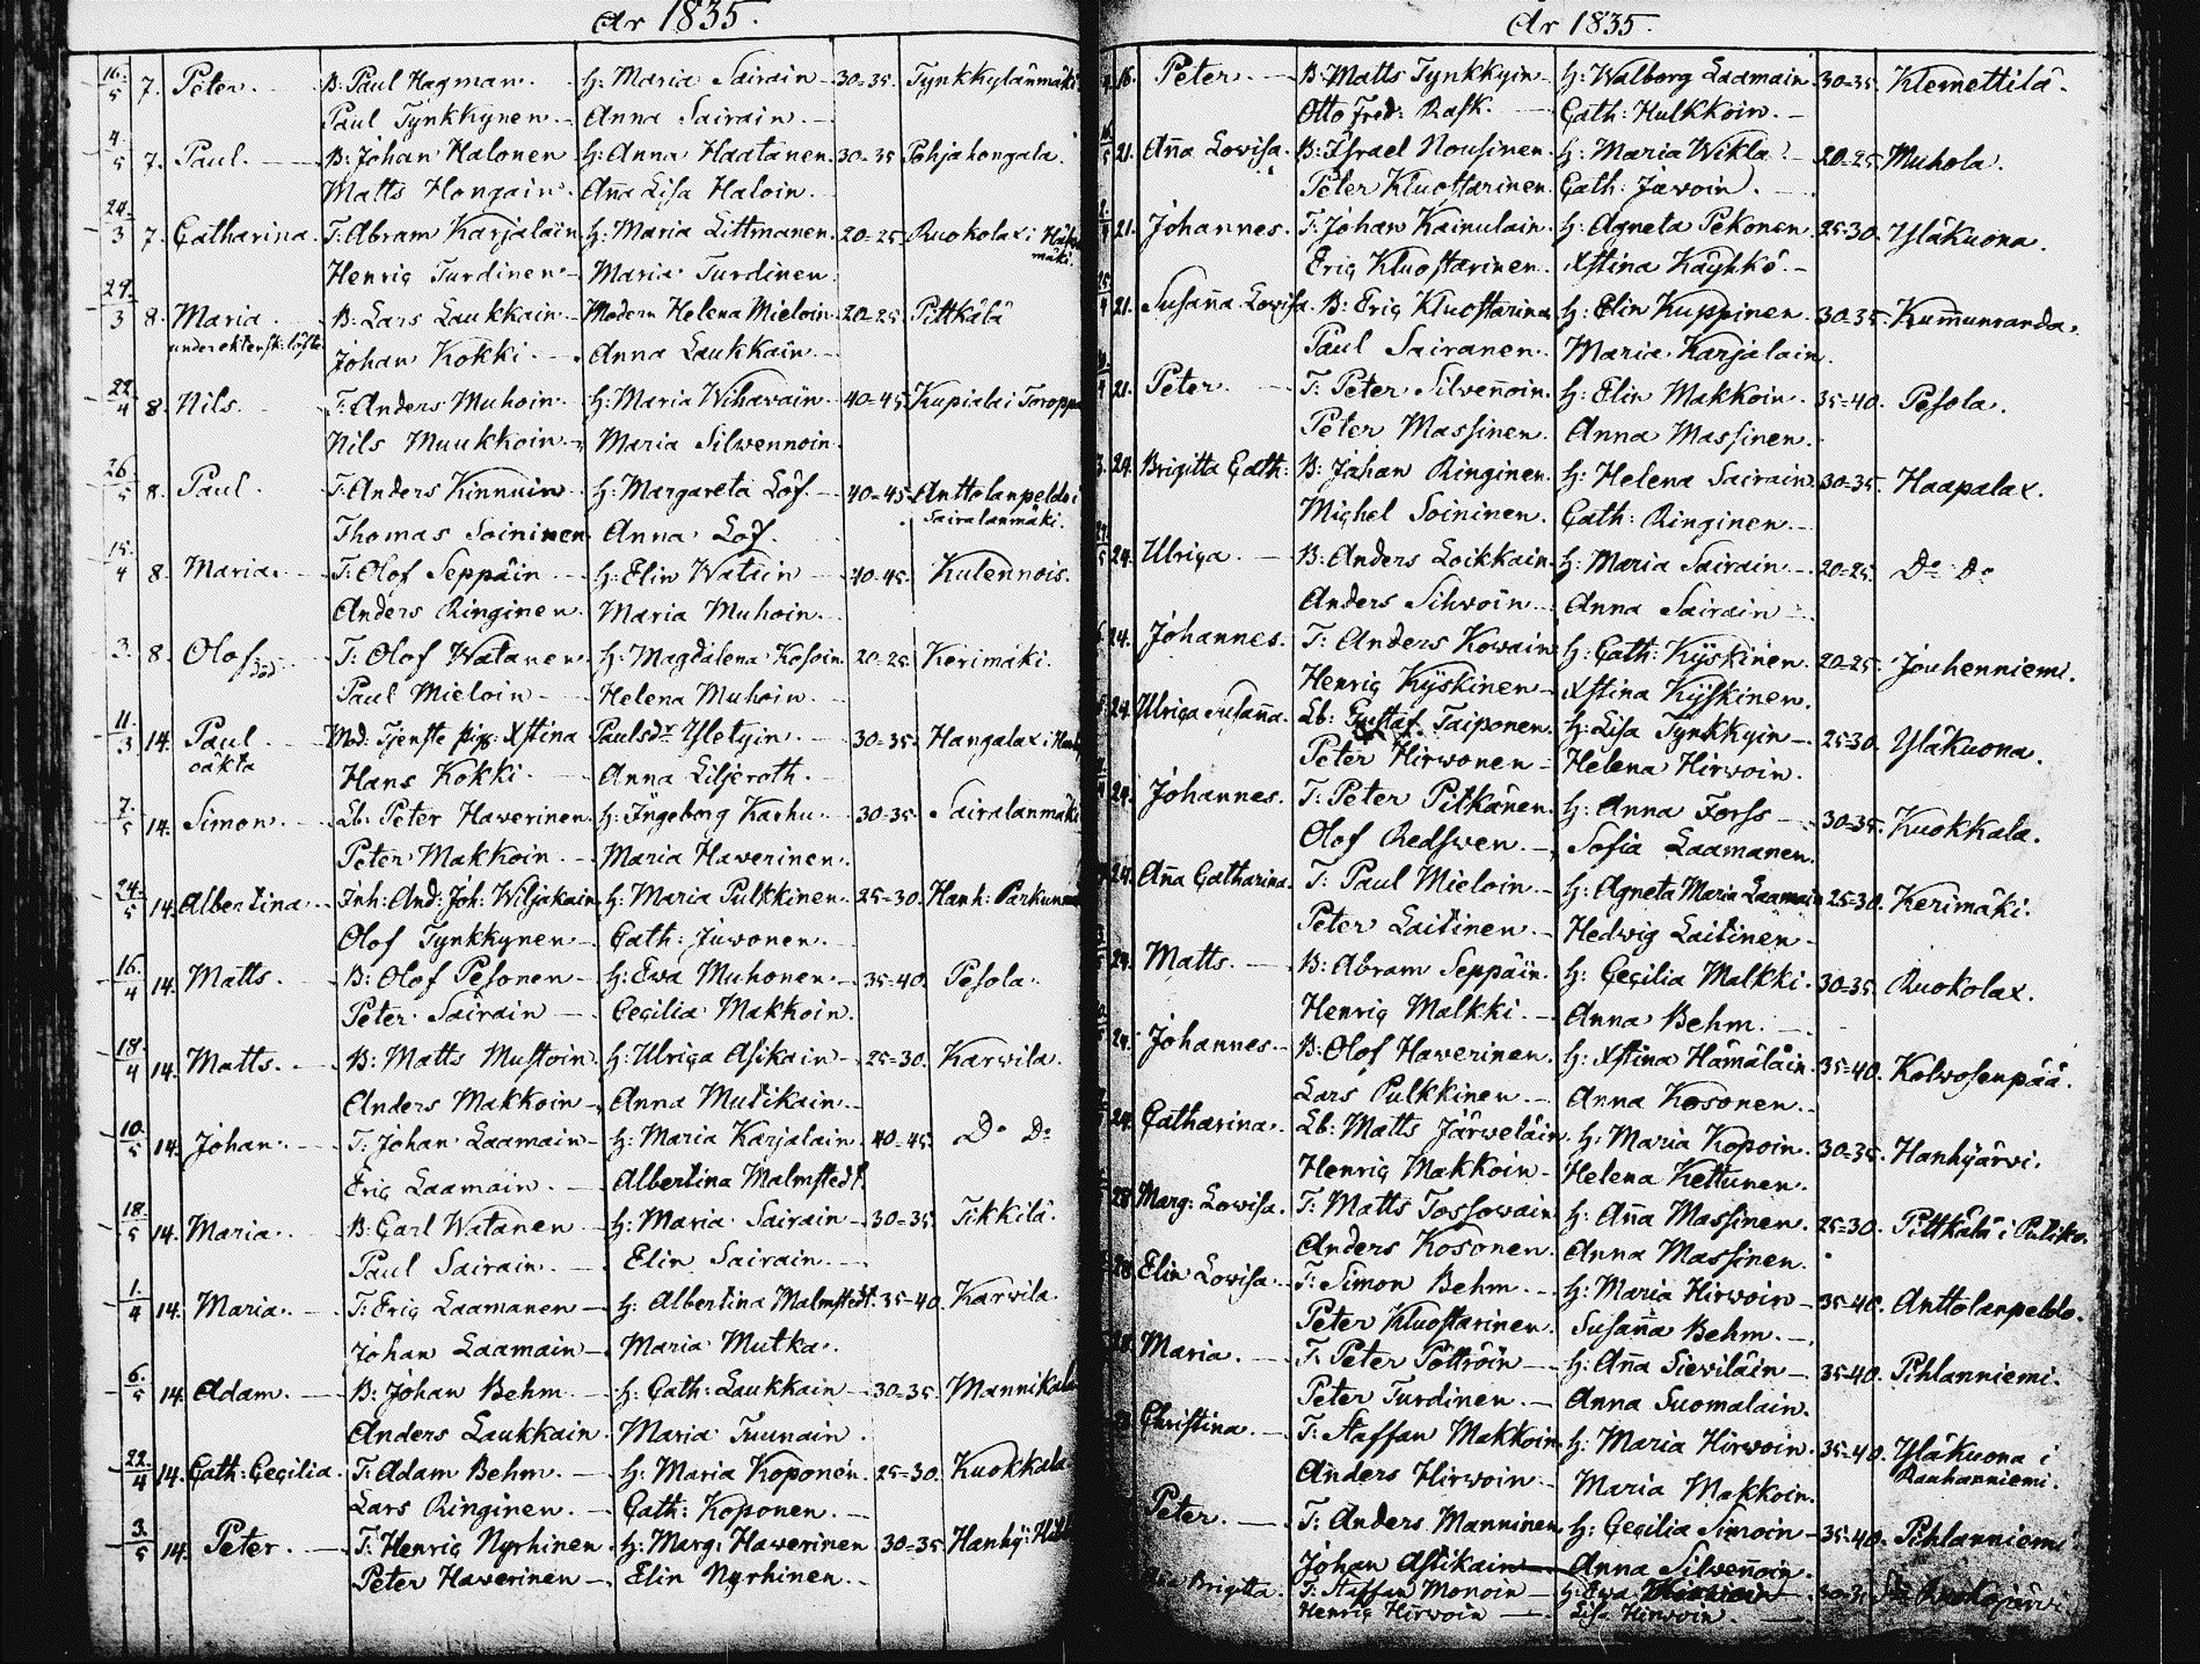 Ar 1835.
16/5 7. Peter. B: Paul Hagman. H: Maria Sairain 30=35. Tynkkylänmäki
Paul Tynkkynen. Anna Sairain.
4/5 7. Paul. B: Johan Halonen H: Anna Haatanen. 30=35 Pohjahongala.
Matts Hongain. Aña Lisa Haloin.
24/3 7. Catharina. T: Abram Karjalain H: Maria Littmanen. 20=25 Ruokolax i
mäki.
Henric Turdinen Maria Turdinen
24/3 8. Maria. B: Lars Laukkain Modern Helena Mieloin 20=25. Pittkälä
under ektensk: löfte
Johan Kokki. Anna Laukkain.
22/4 8. Nils. T: Anders Muhoin H: Maria Wihavain 40=45. Kupiala i Toroppa
Nils Muukkoin Maria Silwennoin
26/5 8. Paul. T: Anders Kinnuin H: Margareta Löf. 40=45. Anttolanpeldo i
Sairalanmäki.
Thomas Soininen Anna Löf.
15/4 8. Maria. T: Olof Seppäin H: Elin Watain 40=45. Kulennois.
Anders Ringinen. Maria Muhoin.
3. 8. Olof död T: Olof Watanen H: Magdalena Kosoin 20=25. Kerimäki.
Paul Mieloin Helena Muhoin
11/3 14. Paul Mod: Tjenste pig: Xstina Paulsdr Yletyin. 30=35. Hangalax i
oäkta
Hans Kokki. Anna Liljeroth.
7/5 14. Simon. Lb: Peter Hawerinen H: Ingeborg Karhu. 30=35. Sairalanmäki
Peter Makkoin. Maria Hawerinen.
24/5 14. Albertina. Inh: And: Joh: Wiljakain H: Maria Pulkkinen. 25=30. Hanh: Parkunmä
Olof Tynkkynen Cath: Juvonen.
16/4 14. Matts. B: Olof Pesonen H: Ewa Muhonen. 35=40. Pesola.
Peter Sairain Cecilia Makkoin.
18/4 14. Matts. B: Matts Mustoin. H: Ulrica Asikain 25=30. Karvila.
Anders Makkoin Anna Mutikain.
10/5 14. Johan. T: Johan Laamain H: Maria Karjalain. 40=45. Do Do
Eric Laamain. Albertina Malmstedt.
18/5 14. Maria. B: Carl Watanen H: Maria Sairain 30=35. Tikkilä.
Paul Sairain. Elin Sairain.
1/4 14. Maria. T: Eric Laamanen H: Albertina Malmstedt. 35=40. Karvila.
Johan Laamain Maria Mutka.
6/5 14. Adam. B: Johan Behm. H: Cath: Laukkain 30=35. Mannikala
Anders Laukkain. Maria Tuunain.
22/4 14. Cath: Cecilia. T: Adam Behm. H: Maria Koponen. 25=30. Kuokkala
Lars Ringinen. Cath: Koponen.
3/5 14. Peter. T: Henric Nyrhinen H: Marg: Hawerinen 30=35. Hanhij:
Peter Hawerinen Elin Nyrhinen.
Ar 1835.
16. Peter. B: Matts Tynkkyin H: Walborg Laamain. 30=35. Klemettilä.
Otto Fred: Rask. Cath: Hulkkoin.
21. Aña Lovisa. B: Israel Nousinen H: Maria Wikla. 20=25. Muhola.
Peter Kluostarinen. Cath: Juvoin.
21. Johannes. T: Johan Kainulain. H: Agneta Pekonen. 25=30. Yläkuona.
Eric Kluostarinen. Xstina Käyhkö.
21. Susaña Lovisa. B: Eric Kluostarinen H: Elin Kuppinen. 30=35. Kummunranda.
Paul Sairanen. Maria Karjalain.
21. Peter. T: Peter Silvenoin. H: Elin Makkoin. 35=40. Pesola.
Peter Massinen. Anna Massinen.
24. Brigitta Cath: B: Johan Ringinen. H: Helena Sairain. 30=35. Haapalax.
Michel Soininen. Cath: Ringinen.
24. Ulrica. B: Anders Loikkain. H: Maria Sairain. 20=25. Do Do
Anders Silwoin. Anna Sairain
24. Johannes. T: Anders Kowain H: Cath: Kyskinen. 20=25. Jouhenniemi.
Henric Kyskinen Xstina Kyskinen.
24. Ulrica Susaña. Lb: Gustaf Taiponen. H: Lisa Tynkkyin 25=30. Yläkuona.
Peter Hirwonen Helena Hirwoin.
24. Johannes. T: Peter Pitkänen. H: Anna Forss 30=35. Kuokkala.
Olof Redswen. Sofia Laamanen.
24. Aña Catharina. T: Paul Mieloin. H: Agneta Maria Laamain 25=30. Kerimäki.
Peter Laitinen. Hedwig Laitinen
24. Matts. B: Abram Seppäin. H: Cecilia Malkki. 30=35. Ruokolax.
Henric Malkki. Anna Behm.
24. Johannes. B: Olof Hawerinen. H: Xstina Hämäläin. 35=40. Kolvosenpää.
Lars Pulkkinen. Anna Kosonen.
24. Catharina. Lb: Matts Järweläin. H: Maria Kopoin. 30=35. Hanhijärvi.
Henric Makkoin Helena Kettunen.
28. Marg: Lovisa. T: Matts Tossowain H: Aña Massinen. 25=30. Pittkälä i
Anders Kosonen. Anna Massinen.
28. Elin Lovisa. T: Simon Behm. H: Maria Hirwoin 35=40. Anttolanpeldo.
Peter Kluostarinen. Susaña Behm.
28. Maria. T: Peter Pöttröin H: Aña Sieviläin 35=40. Pihlanniemi.
Peter Turdinen. Anna Suomalain.
Christina. T: Staffan Makkoin. H: Maria Hirwoin. 35=40. Yläkuona i
Rauhanniemi.
Anders Hirwoin. Maria Makkoin.
Peter. T: Anders Manninen H: Cecilia Simoin 35=40. Pihlanniemi
Johan Astikain Anna Silvenoin.
Brigitta. T: Staffan Monoin H: Ewa
Henric Hirwoin Lisa Hirwoin.